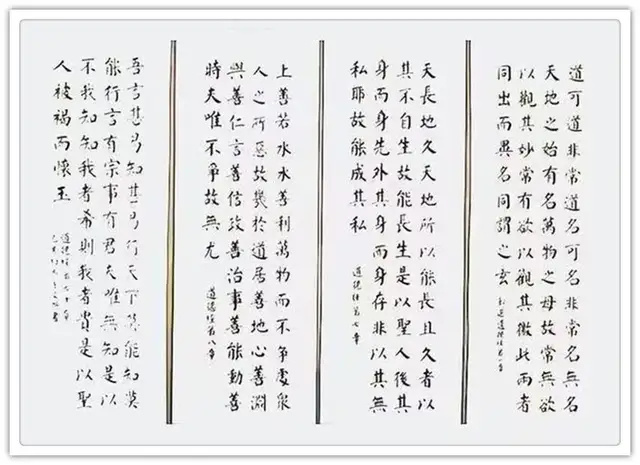 道可道非常道名可名非常名無名
天地之始有名萬物之母故常無欲
以觀其妙常有欲以觀其徼此兩者
同出而異名同謂之玄
道德經第一章
天長地久天地所以能長且久者以
其不自生故能長生是以聖人後其
身而身先外其身而身存非以其無
私耶故能成其私
道德經第七章
上善若水水善利萬物而不争處衆
人之所惡故幾於道居善地心善淵
與善仁言善信政善治事善能動善
時夫唯不争故無尤
道德經第八章
吾言甚易知甚易行天下莫能知莫
能行言有宗事有君夫唯無知是以
不我知知我者希則我者貴是以聖
人被褐而懷玉
道德經第七十章